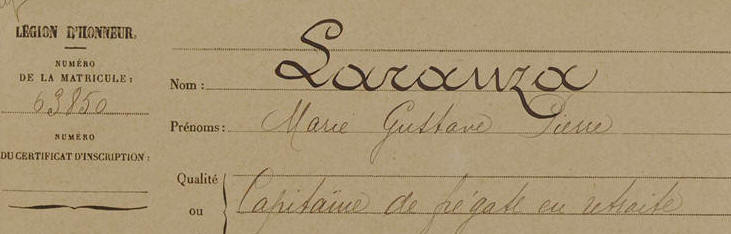 LÉGION D'HONNEUR.
NUMÉRO
DE LA MATRICULE :
63850
NUMÉRO
DU CERTIFICAT D'INSCRIPTION :
Nom : Laranza
Prénoms : Marie Gustave Pierre
Qualité
ou
Capitaine de frégate en retraite